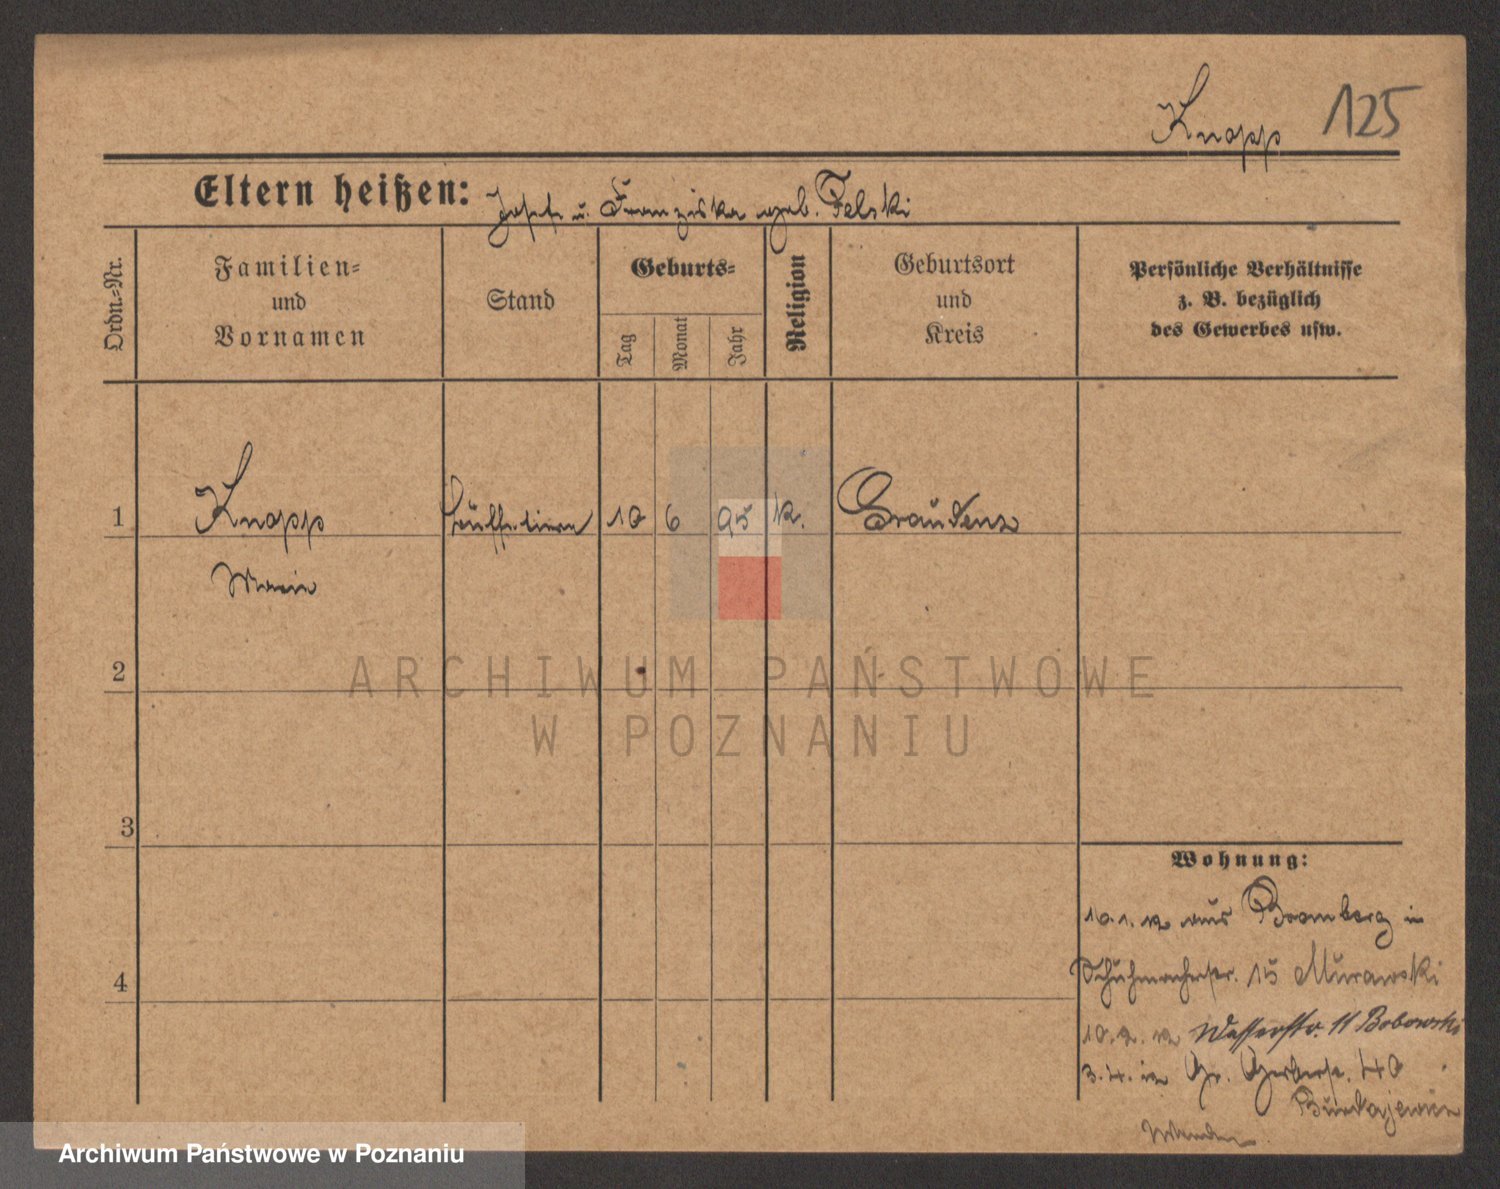 Knopp 125
Eltern heißen: Josef u. Franziska geb. Felski
Ordn.-Nr.
Familien-
und
Vornamen
Stand
Geburts-
Tag
Monat
Jahr
Religion
Geburtsort
und
Kreis
Persönliche Verhältnisse
z. B. bezüglich
des Gewerbes usw.
1 Knopp 10 6 95 k. Graudenz
Marie
2
ARCHIWUM PAŃSTWOWE
W POZNANIU
3
Wohnung:
10.1.12 aus Bromberg in
Schuhmacherstr. 15 Murawski
4
10.2.12 Wasserstr. 11 Bobowski
3.4.12 Gr. Gerberstr. 40
Archiwum Państwowe w Poznaniu